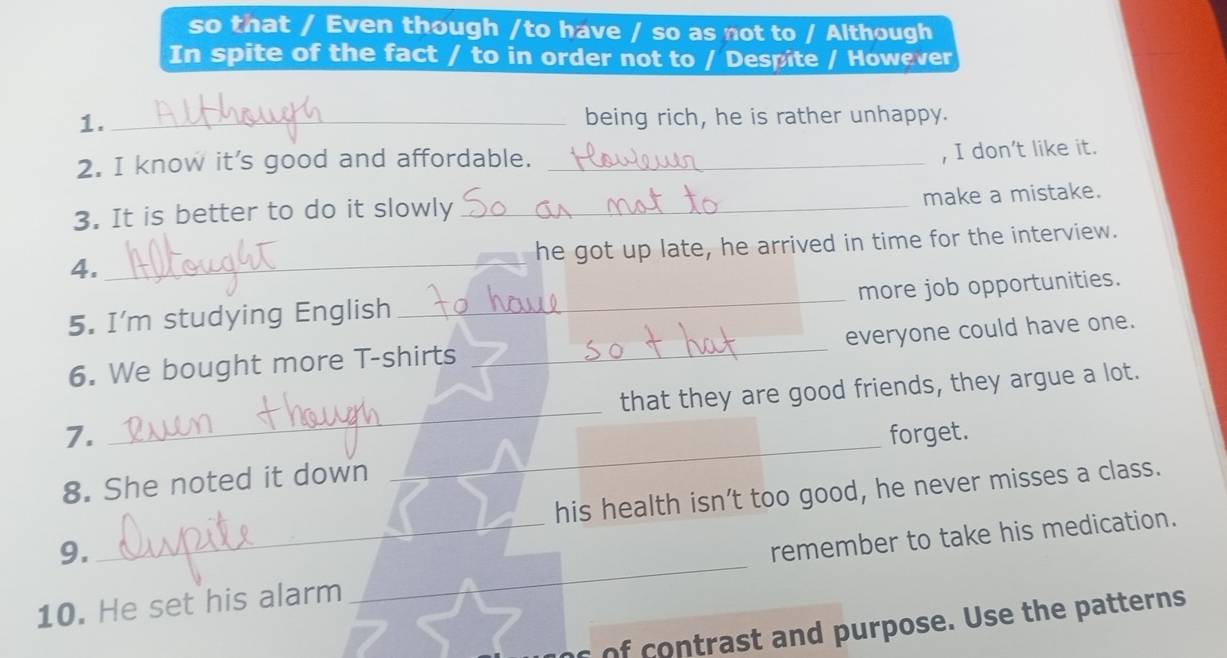 so that / Even though /to have / so as not to / Although
In spite of the fact / to in order not to / Despite / However
1. Although being rich, he is rather unhappy.
2. I know it's good and affordable. However , I don't like it.
3. It is better to do it slowly So as not to make a mistake.
4. Altought he got up late, he arrived in time for the interview.
5. I'm studying English to have more job opportunities.
6. We bought more T-shirts so that everyone could have one.
7. even though that they are good friends, they argue a lot.
8. She noted it down forget.
9. Dispite his health isn't too good, he never misses a class.
10. He set his alarm remember to take his medication.
of contrast and purpose. Use the patterns